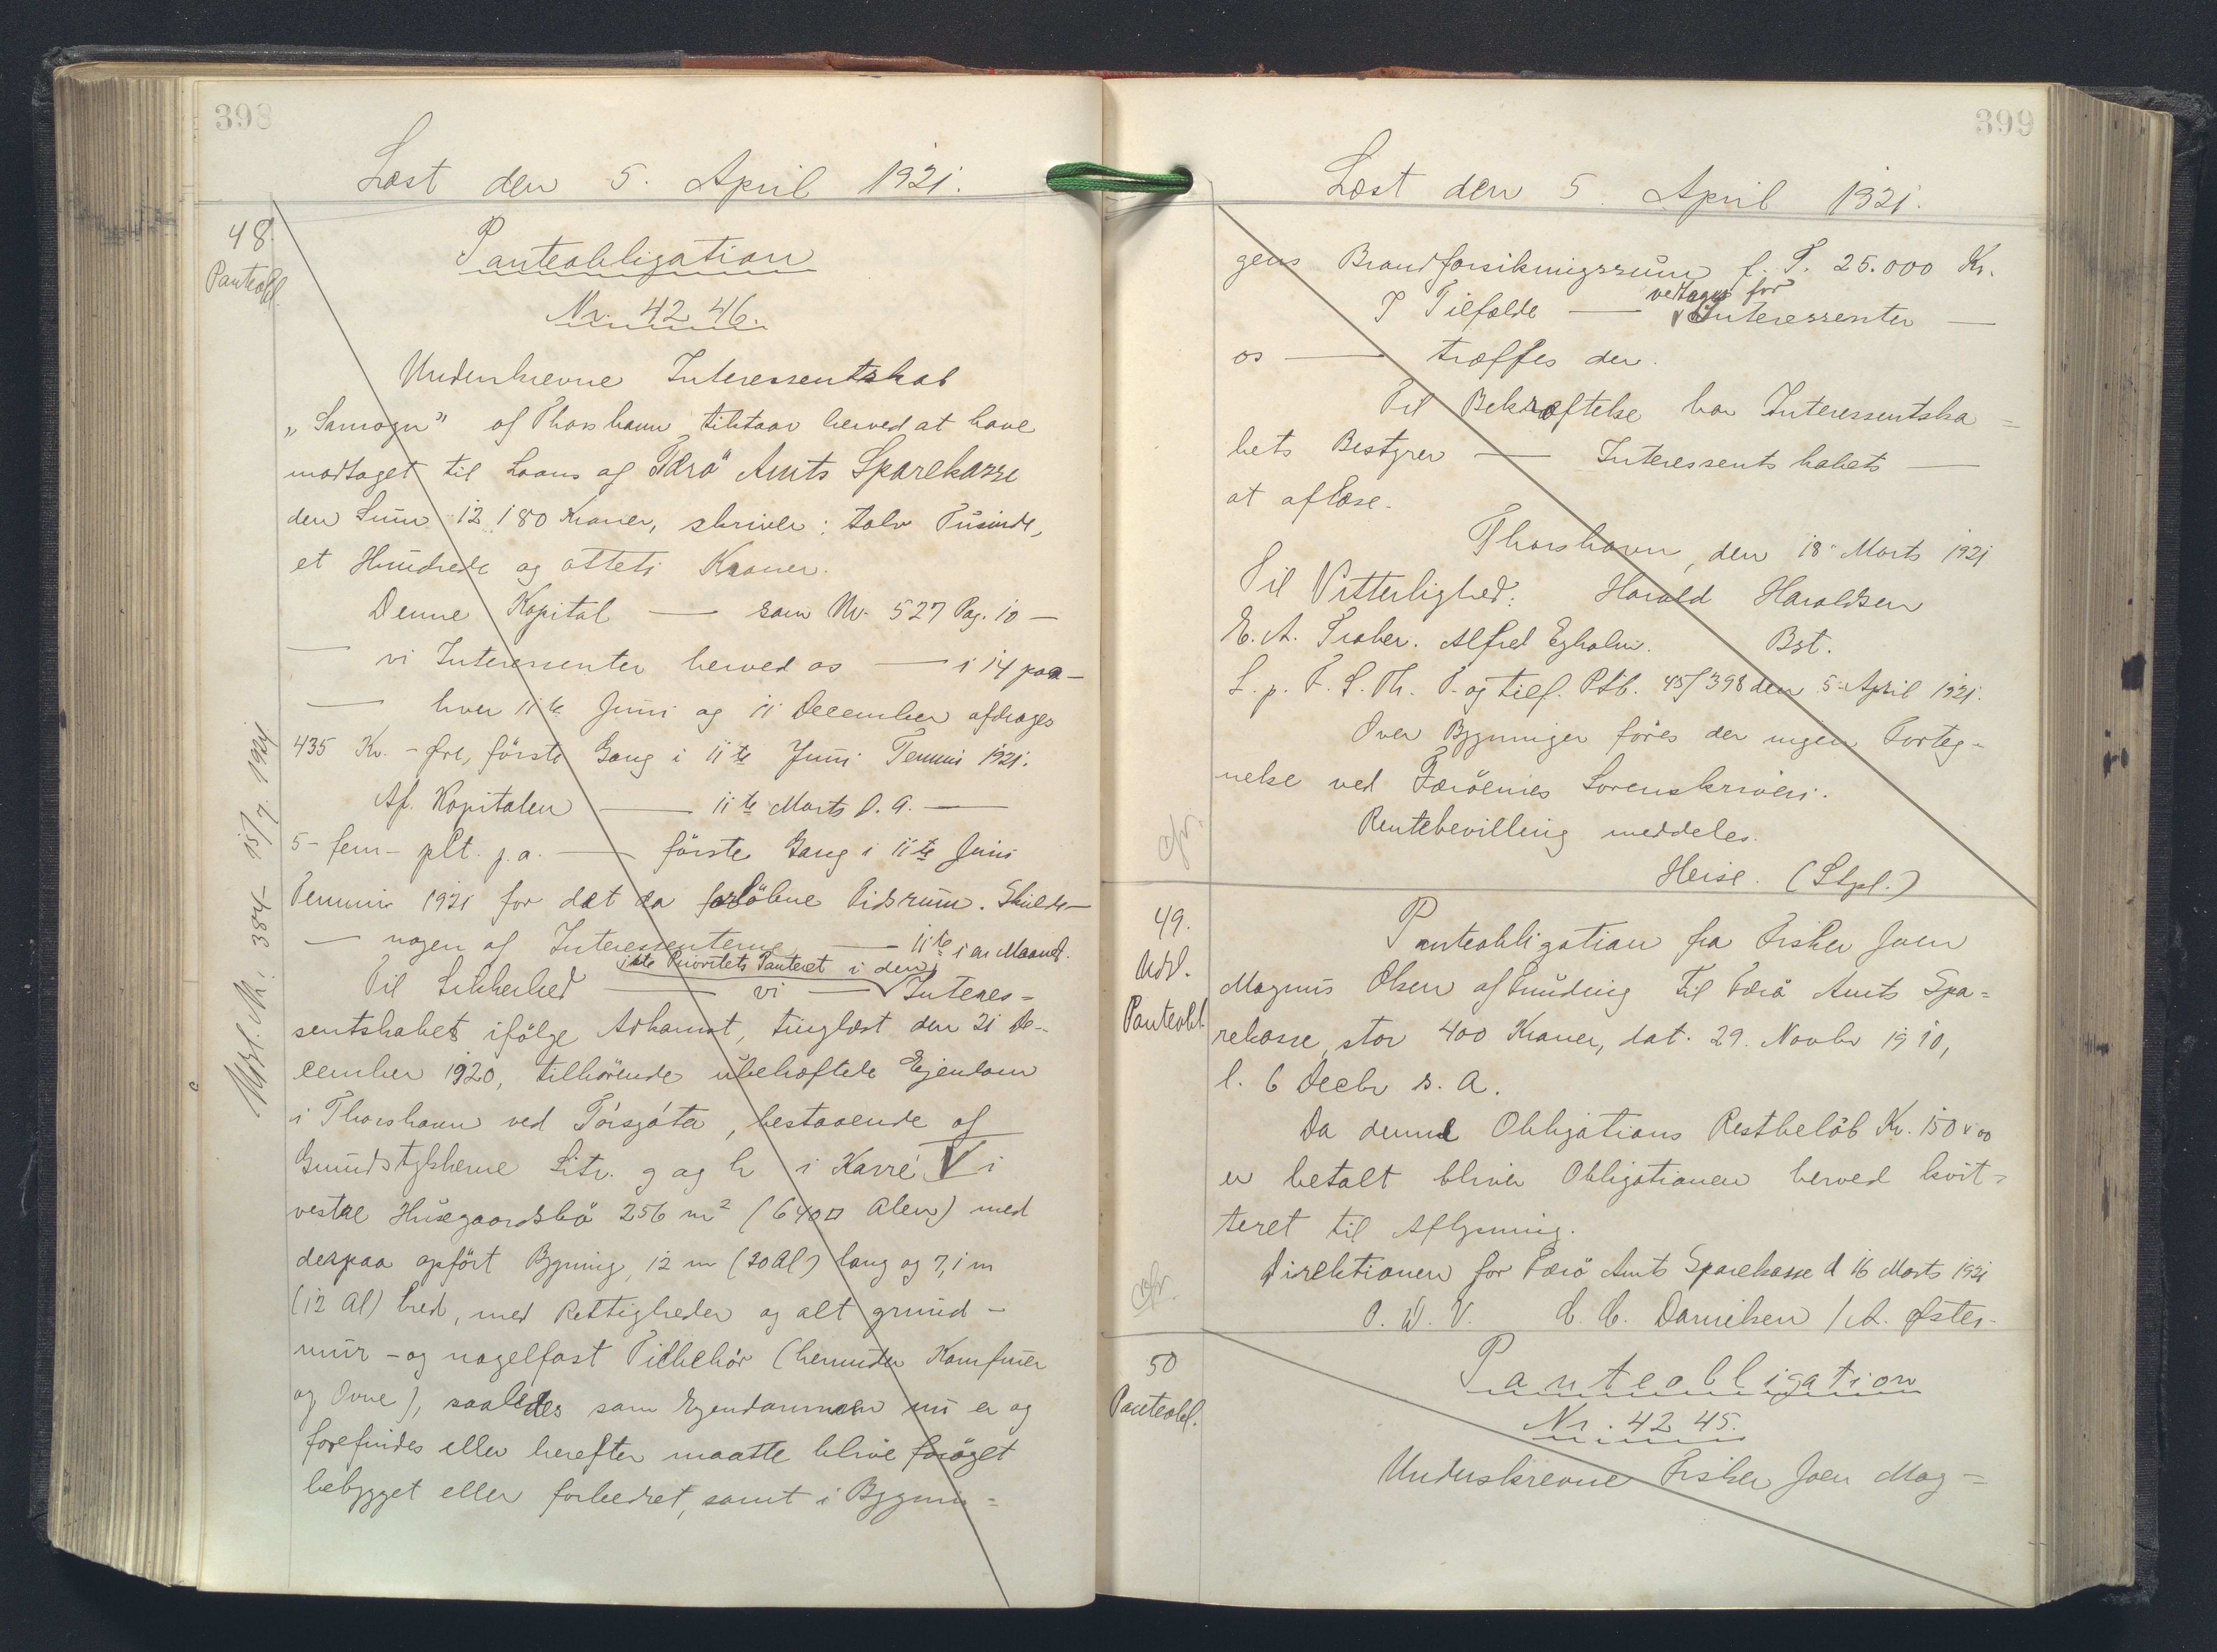 398
Læst den 5. April 1921.
48.
Panteobl.
Panteobligation
Nr. 4246.
Underskrevne Interessentskab
„Samogn" af Thorshavn tilstaar herved at have
modtaget til Laans af Færø Amts Sparekasse
den Sum 12180 Kroner, skriver: tolv Tusinde,
et Hundrede og otteti Kroner.
Denne Kapital — som Nr. 527 Pag. 10 —
— vi Interessenter herved os — i 14 paa —
— hver 11te Juni og 11 December afdrages
435 Kr. - Øre, første Gang i 11te Juni Termin 1921.
Af Kapitalen — 11te Marts d. A. —
5 - fem - pCt. p.a. — første Gang i 11te Juni
Termin 1921 for det da forløbne Tidsrum. Skulde —
— nogen af Interessenterne — 11te i en Maaned.
Til Sikkerhed — 1ste Prioritets Panteret i den vi — Interes=
sentskabet ifølge Adkomst, tinglæst den 21 De-
cember 1920, tilhørende ubehæftede Ejendom
i Thorshavn ved Tórsgøta, bestaaende af
Grundstykkerne Litr. g og h i Karré V i
vestre Husegaardsbø 256 m² (640 □ Alen) med
derpaa opført Bygning, 12 m (20 Al) lang og 7,1 m
(12 Al) bred, med Rettigheder og alt grund -
mur - og nagelfast Tilbehør (herunder Komfurer
og Ovne), saaledes som Ejendommen nu er og
forefindes eller herefter maatte blive forøget
bebygget eller forbedret, samt i Bygnin=
Udsl. Nr. 384 - 15/7 1921
399
Læst den 5. April 1921.
gens Brandforsikringssum f. T. 25.000 Kr.
I Tilfælde — vedtages for Interessenter —
os — træffes der.
Til Bekræftelse har Interessentska=
bets Bestyrer — Interessentskabets —
at aflæse.
Thorshavn, den 18. Marts 1921
Til Vitterlighed: Harald Haraldsen
E. A. Traber. Alfred Egholm. Bst.
L. p. F. S. Th. P. og tilf. Ptb. 45/398 den 5. April 1921.
Over Bygninger føres der ingen Forteg-
nelse ved Færøernes Sorenskriveri.
Rentebevilling meddeles.
Heise. (Stpl.)
cfr.
49.
Udsl.
Panteobl.
Panteobligation fra Fisker Joen
Magnus Olsen af Funding til Færø Amts Spa=
rekasse, stor 400 Kroner, dat. 29. Novbr 1910,
l. 6 Decbr s. A.
Da denne Obligations Restbeløb Kr. 150 x 00
er betalt bliver Obligationen herved kvit=
teret til Aflysning.
Direktionen for Færø Amts Sparekasse d 16 Marts 1921
P. D. V. C. C. Danielsen / A. Øster-
cfr.
50
Panteobl.
Panteobligation
Nr. 4245.
Underskrevne Fisker Joen Mag=